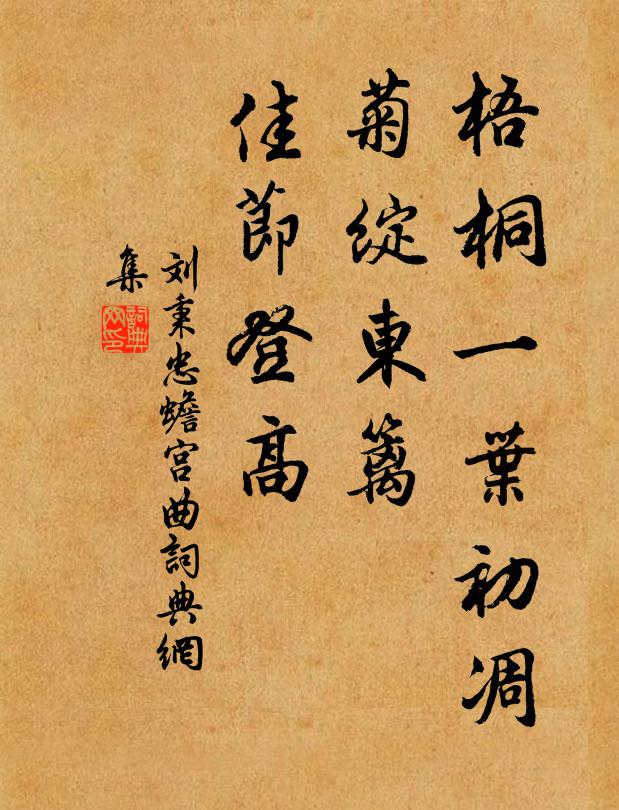 梧桐一葉初凋
菊綻東籬
佳節登高
刘秉忠蟾宫曲詞典網
集
詞典
网印